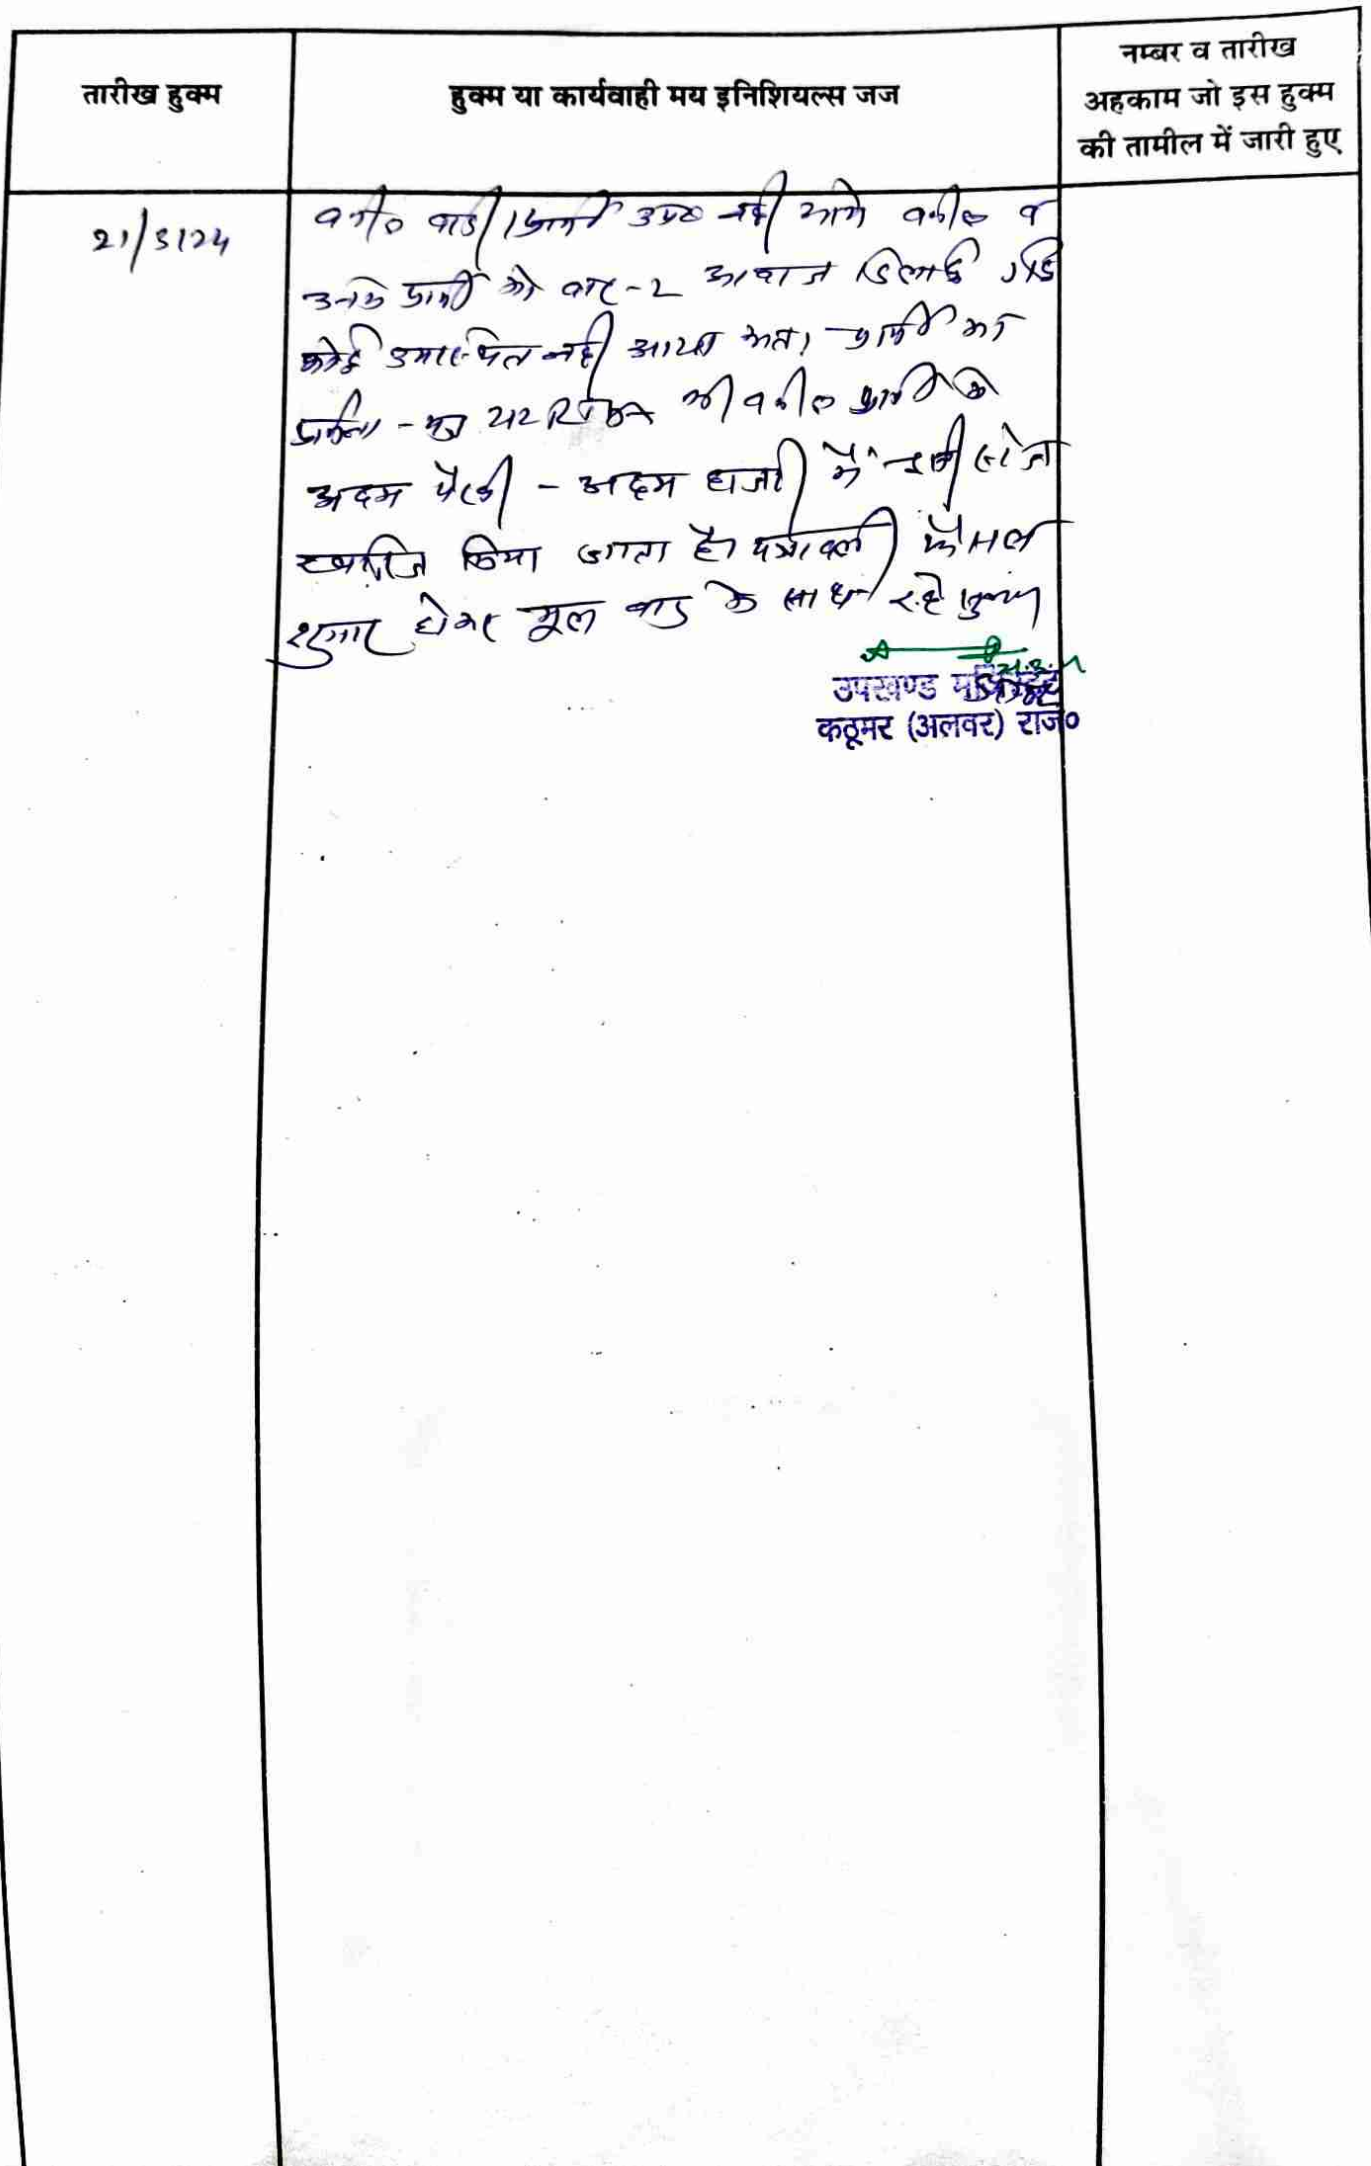 तारीख हुक्म
हुक्म या कार्यवाही मय इनिशियल्स जज
नम्बर व तारीख
अहकाम जो इस हुक्म
की तामील में जारी हुए
21/3/24
वादी / प्रार्थी उप० नही आये वकील व
उनके प्रार्थी को बार-2 आवाज दिलाई गई
कोई उपस्थित नही आया अतः प्रार्थी का
प्रार्थना-पत्र वकील प्रार्थी के
अदम पैरवी - अदम हाजरी में इसी स्टेज
खारिज किया जाता है। पत्रावली फैसल
शुमार होकर मूल वाद के साथ रहे
उपखण्ड मजिस्ट्रेट
कठूमर (अलवर) राज०